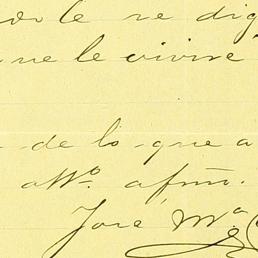 le se dig
que le vivire
de lo que a
atto. afmo.
José Ma